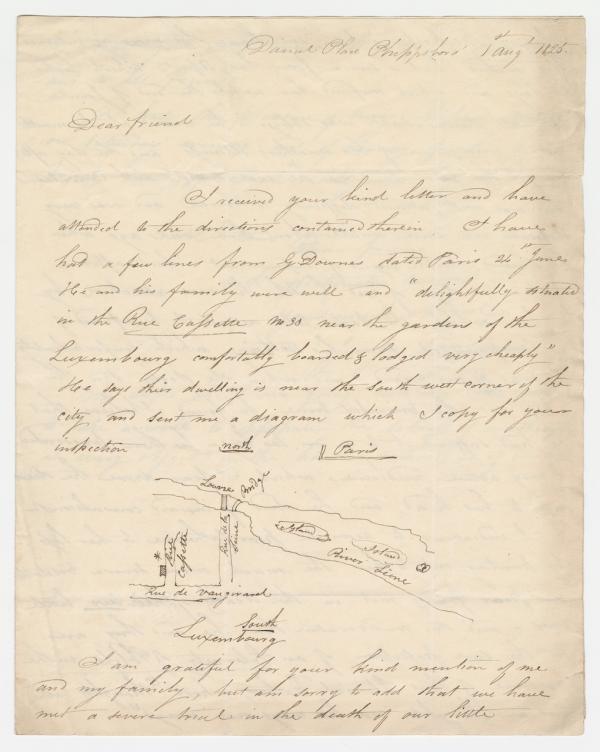 Daniel Place Phippsboro' 1st Augt 1825.
Dear friend
I received your kind letter and have
attended to the directions contained therein. I have
had a few lines from G Downes dated Paris 24th June
He and his family were well and "delightfully situated
in the Rue Cassette No 30 near the gardens of the
Luxembourg comfortably boarded & lodged very cheaply"
He says thier dwelling is near the south west corner of the
city and sent me a diagram which I copy for your
inspection
north
Paris
Louvre Bridge
Rue Cassette
Rue de la Seine
Island
Island
River Siene
Rue de Vaugirard
South
Luxembourg
I am grateful for your kind mention of me
and my family but am sorry to add that we have
met a severe trial in the death of our little